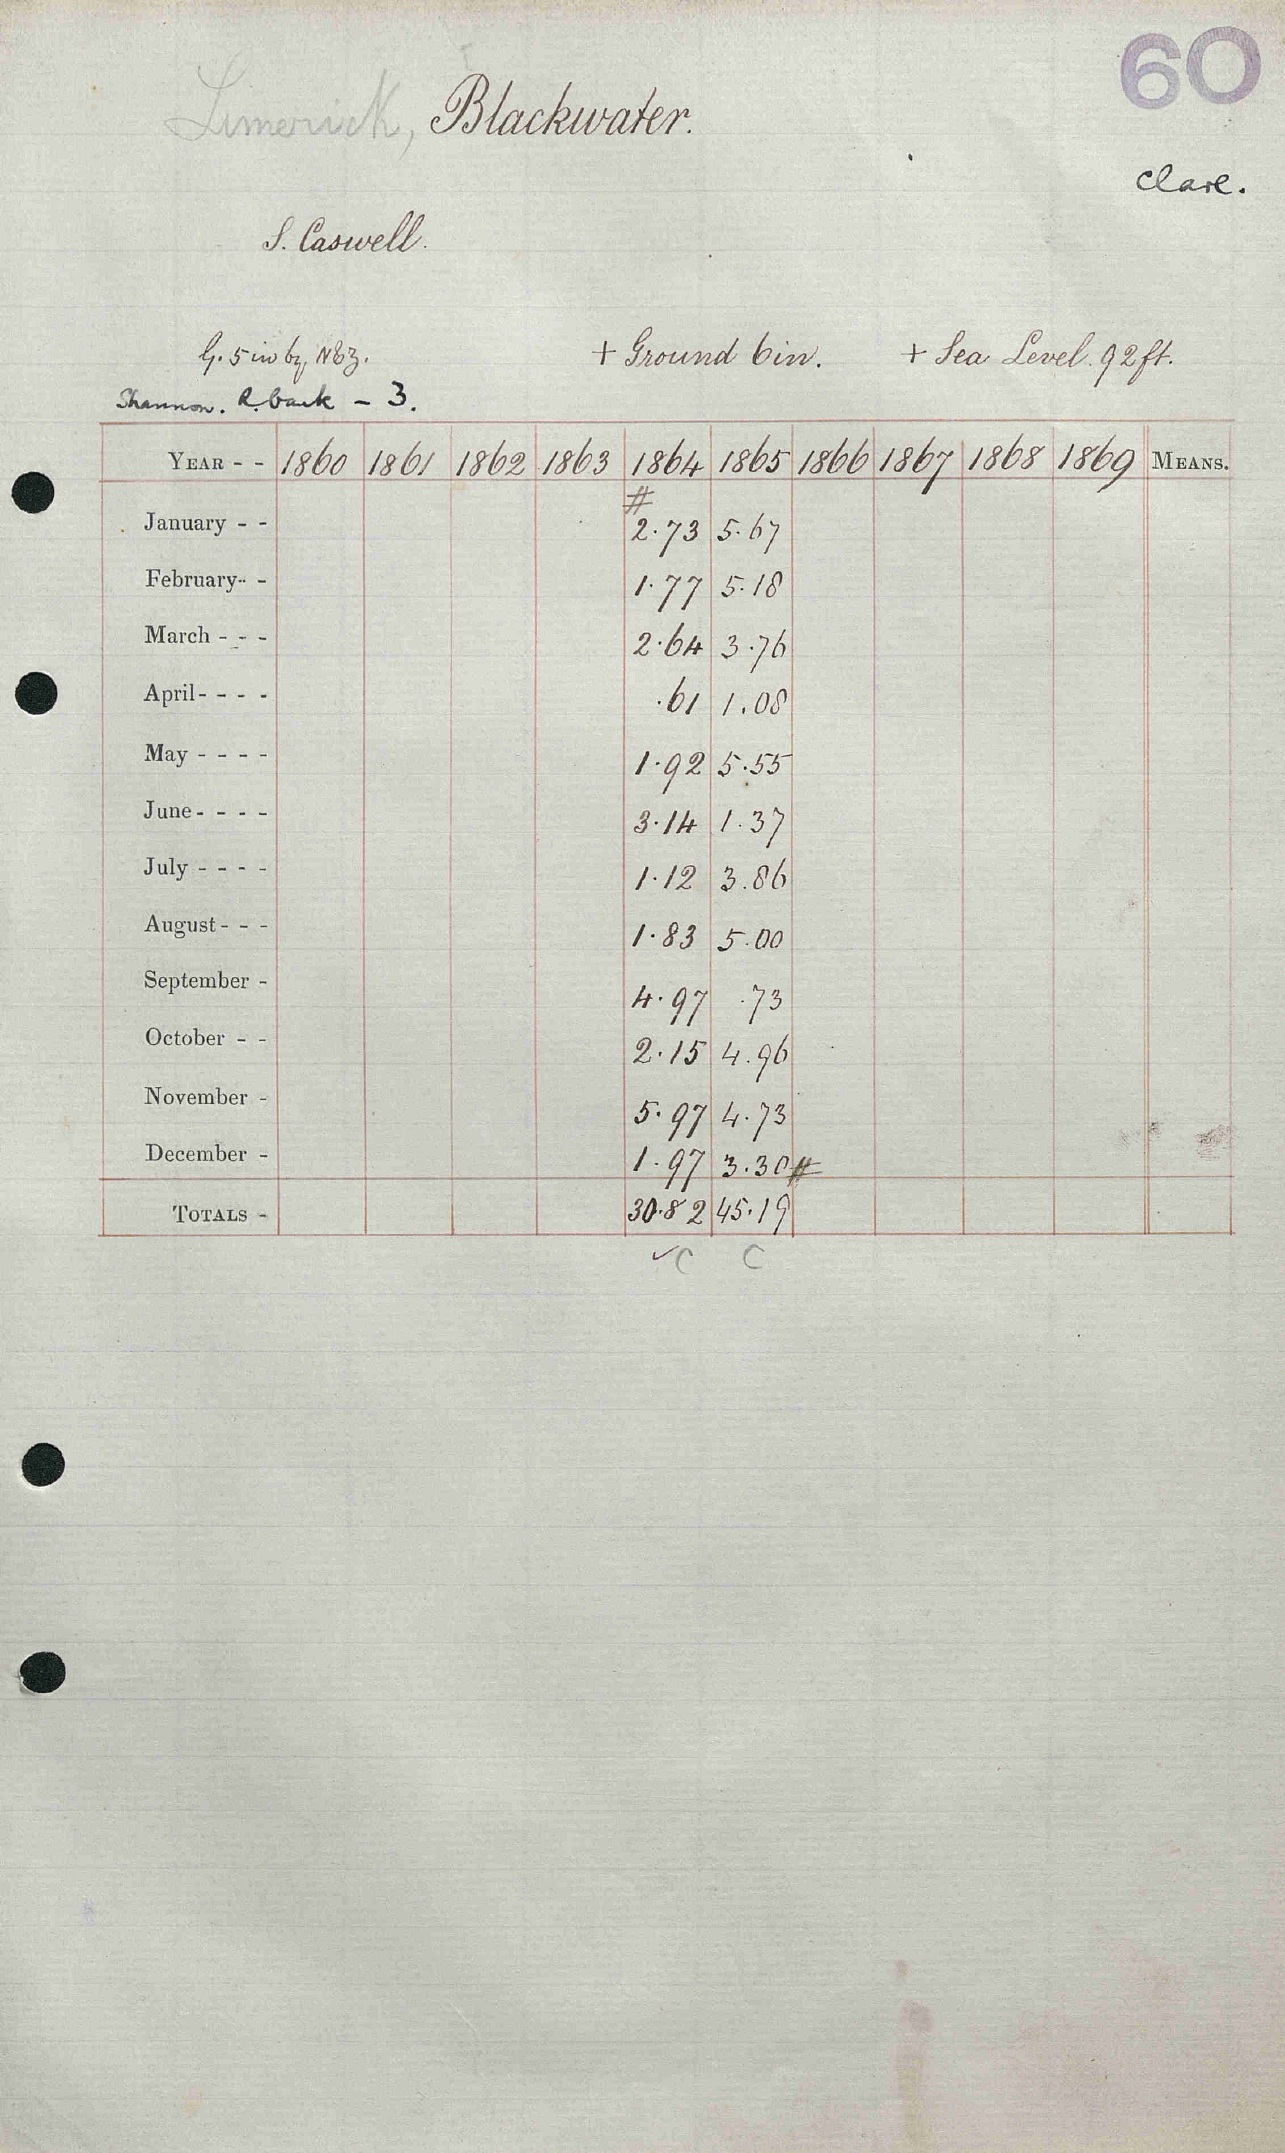 60
Limerick, Blackwater.
Clare.
S. Caswell.
G. 5 in by N&Z. + Ground 6in. + Sea Level 92ft.
Shannon. R. bank - 3.
YEAR - - 1860 1861 1862 1863 1864 1865 1866 1867 1868 1869 MEANS.
#
January - - 2.73 5.67
February - - 1.77 5.18
March - - - 2.64 3.76
April - - - - .61 1.08
May - - - - 1.92 5.55
June - - - - 3.14 1.37
July - - - - 1.12 3.86
August - - - 1.83 5.00
September - 4.97 .73
October - - 2.15 4.96
November - 5.97 4.73
December - 1.97 3.30 #
TOTALS - 30.82 45.19
✓C C